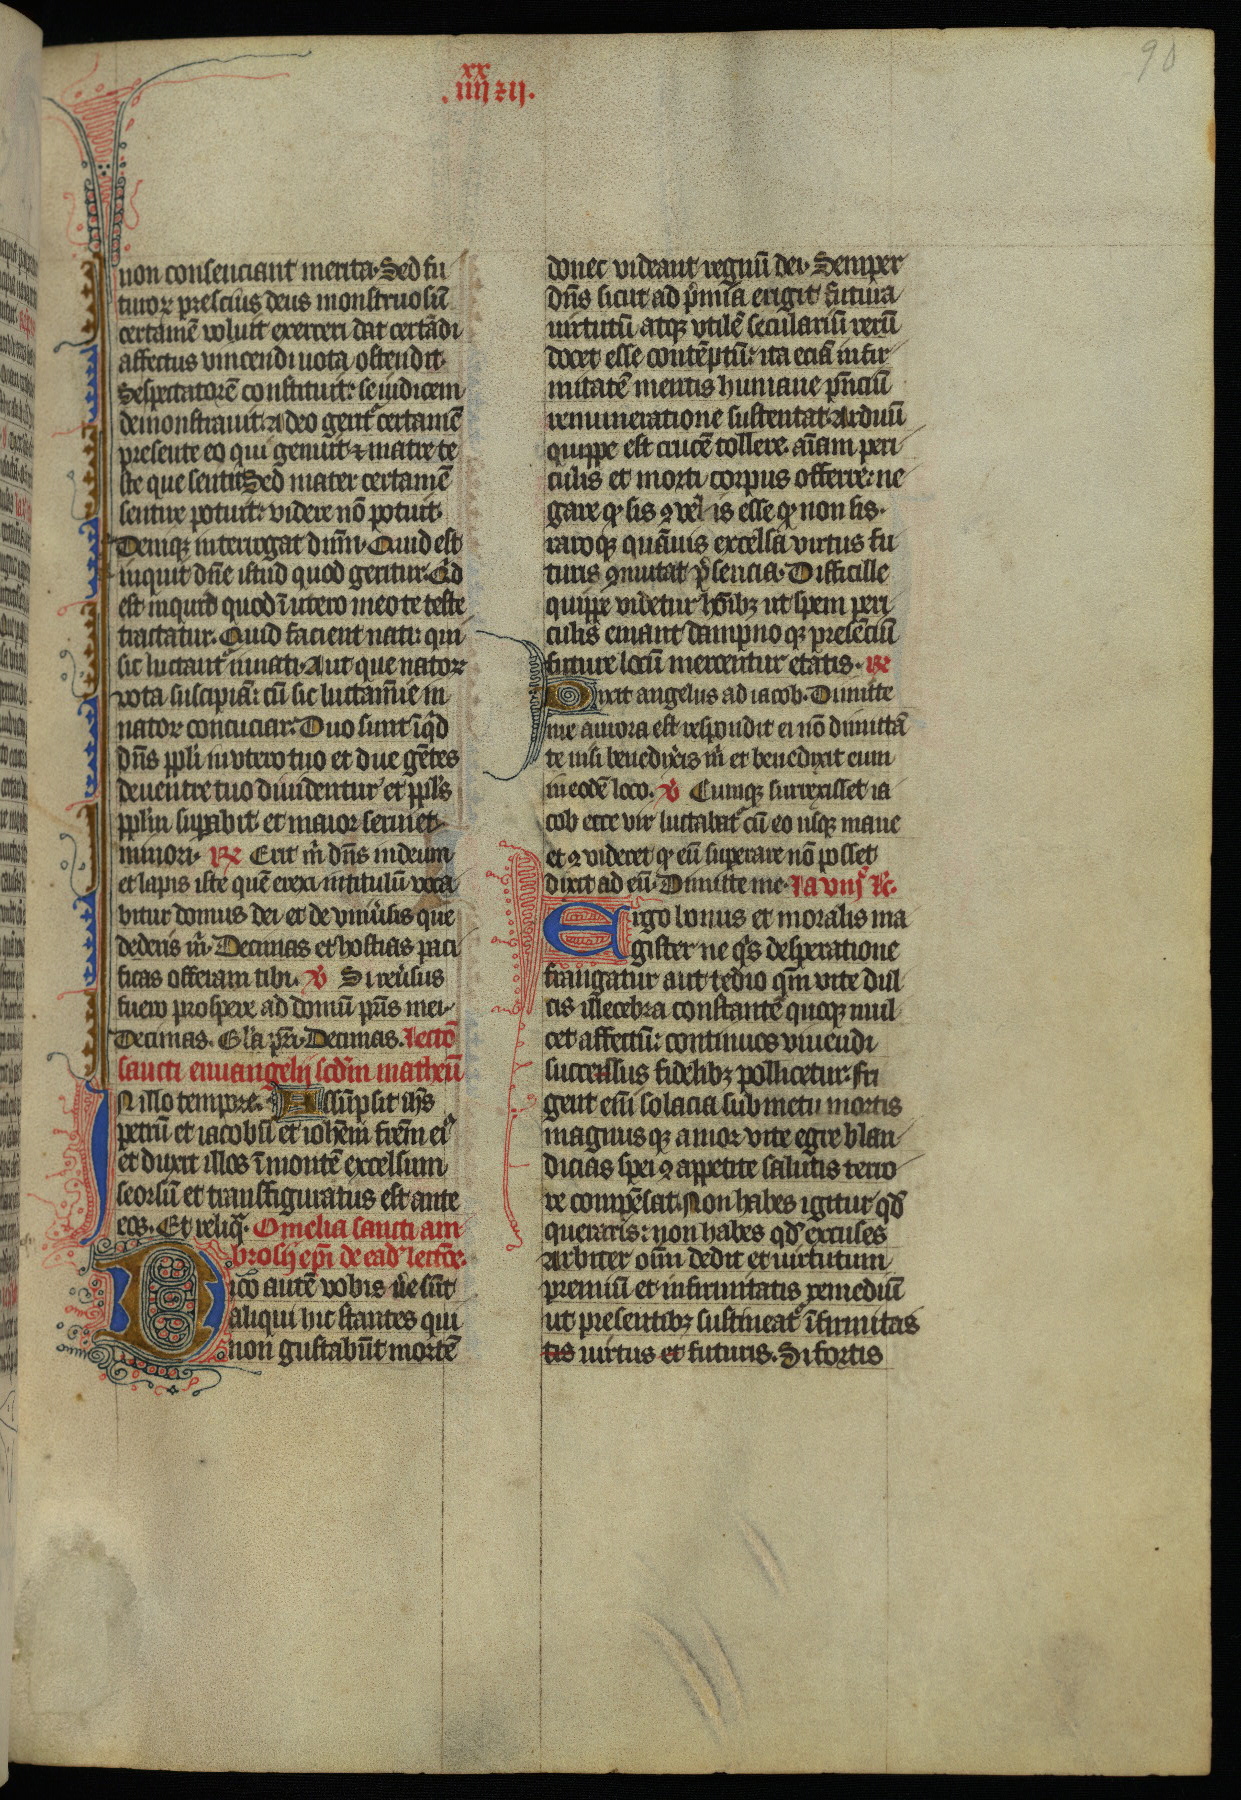 90
xx
.iiij zij.
non consenciant merita. Sed fu
turoꝝ prescius deus monstruosū
certamē voluit exerceri dat certādi
affectus vincendi uota ostendit.
Se spectatorē constituit: se iudicem
demonstrauit. Adeo gerit͛ certamē
presente eo qui genuit ⁊ matre te
ste que sentit. Sed mater certamē
sentire potuit: videre nō potuit.
Deniqꝫ interrogat dn̄m. Quid est
inquit dn̄e istud quod geritur. Qͥd
est inquid quod ī utero meo te teste
tractatur. Quid facient nati: qui
sic luctant͛ in nati. Aut que natoꝝ
vota suscipiā: cū sic luctam̄ie in
natoꝝ concuciar. Duo sunt īqͥd
dn̄s ppl̄i in vtero tuo et due gētes
de uentre tuo diuidentur et ppl̄s
ppl̄m suꝑabit et maior seruiet
minori. ℟ Erit m̄ dn̄s in deum
et lapis iste quē erexi in titulū voca
bitur domus dei et de vniu͛sis que
dederis m̄. Decimas et hostias paci
ficas offeram tibi. ℣ Si reu͛sus
fuero prospere ad domū pr̄is mei.
Decimas. Gl̄a pr̄i. Decimas. Lectō
sancti euuangelij scd̄m matheū
N illo tempore. Assūpsit ih̄s
petrū et iacobū et ioh̄em frēm ei͛
et duxit illos ī montē excelsum
seorsū et transfiguratus est ante
eos. Et reliq͛. Omelia sancti am
brosij epī de ead͛ lectōe.
Dico autē vobis u͛e sūt
aliqui hic stantes qui
non gustabūt mortē
donec videant regnū dei. Semper
dn̄s sicut ad p̄mia erigit futura
uirtutū atqꝫ vtilē seculariū rerū
docet esse contēptū: ita eciā infir
mitatē mentis humane pn̄ciū
remuneratione sustentat. Arduū
quippe est crucē tollere. aīam peri
culis et morti corpus offerre: ne
gare qͦ sis ꝙ vel is esse qͦ non sis.
raro qꝫ quāuis excelsa virtus fu
turis ꝯmutat p̄sencia. Difficille
quippe videtur hōibꝫ ut spem peri
culis emant dampno qꝫ presēciū
future locū mercentur etatis. ℟
Dixit angelus ad iacob. Dimitte
me aurora est respondit ei nō dimittā
te nisi benedix͛is m̄ et benedixit eum
in eodē loco. ℣ Cumqꝫ surrexisset ia
cob ecce vir luctabat͛ cū eo usqꝫ mane
et ꝙ videret qͦ eū superare nō posset
dixit ad eū. Dimitte me. La viijͣ Lc̄.
Ergo bonus et moralis ma
gister ne qͥs desperatione
frangatur aut tedio qm̄ vite dul
cis illecebra constantē quoqꝫ mul
cet affectū: continuos viuendi
successus fidelibꝫ pollicetur. Fri
gent em̄ solacia sub metu mortis
magnus qꝫ amor vite egre blan
dicias spei ꝙ appetite salutis terro
re compēsat. Non habes igitur qd̄
queraris: non habes qd̄ excuses
Arbiter oīm dedit et uirtutum
premiū et infirmitatis remediū
ut presentibꝫ sustineat͛ īfirmitas
tis uirtus et futuris. Si fortis